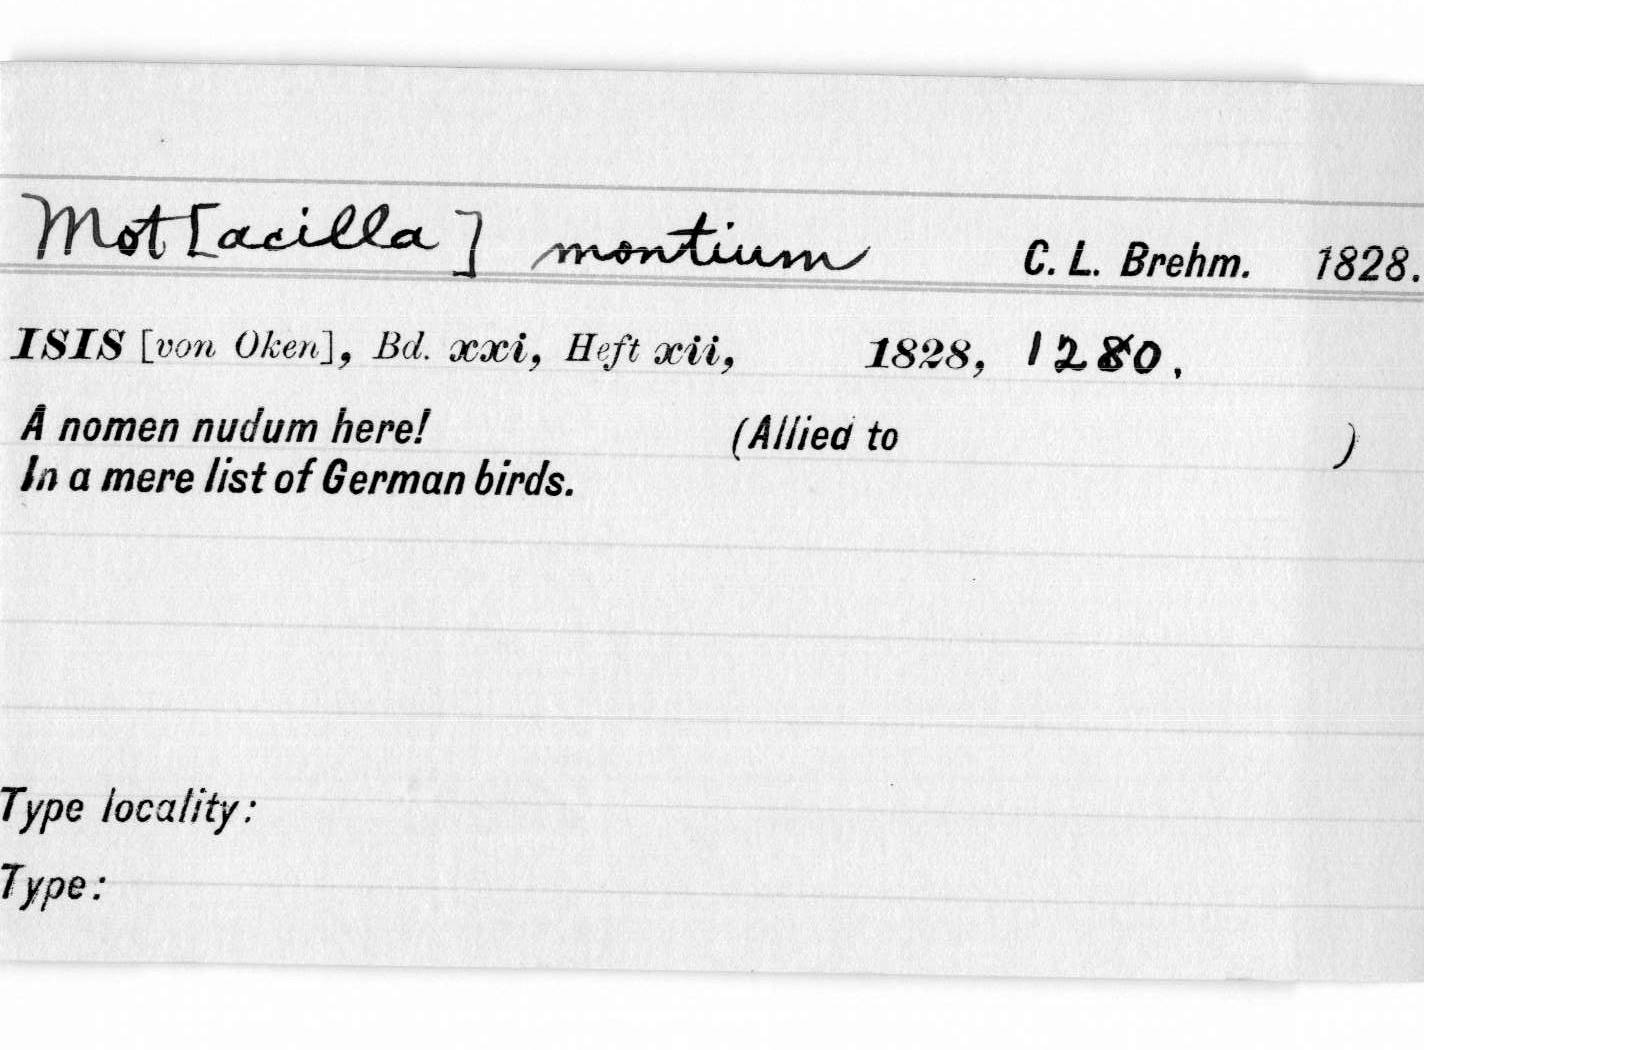 Mot[acilla] montium C. L. Brehm. 1828.
ISIS [von Oken], Bd. xxi, Heft xii, 1828, 1280.
A nomen nudum here! (Allied to )
In a mere list of German birds.
Type locality:
Type: